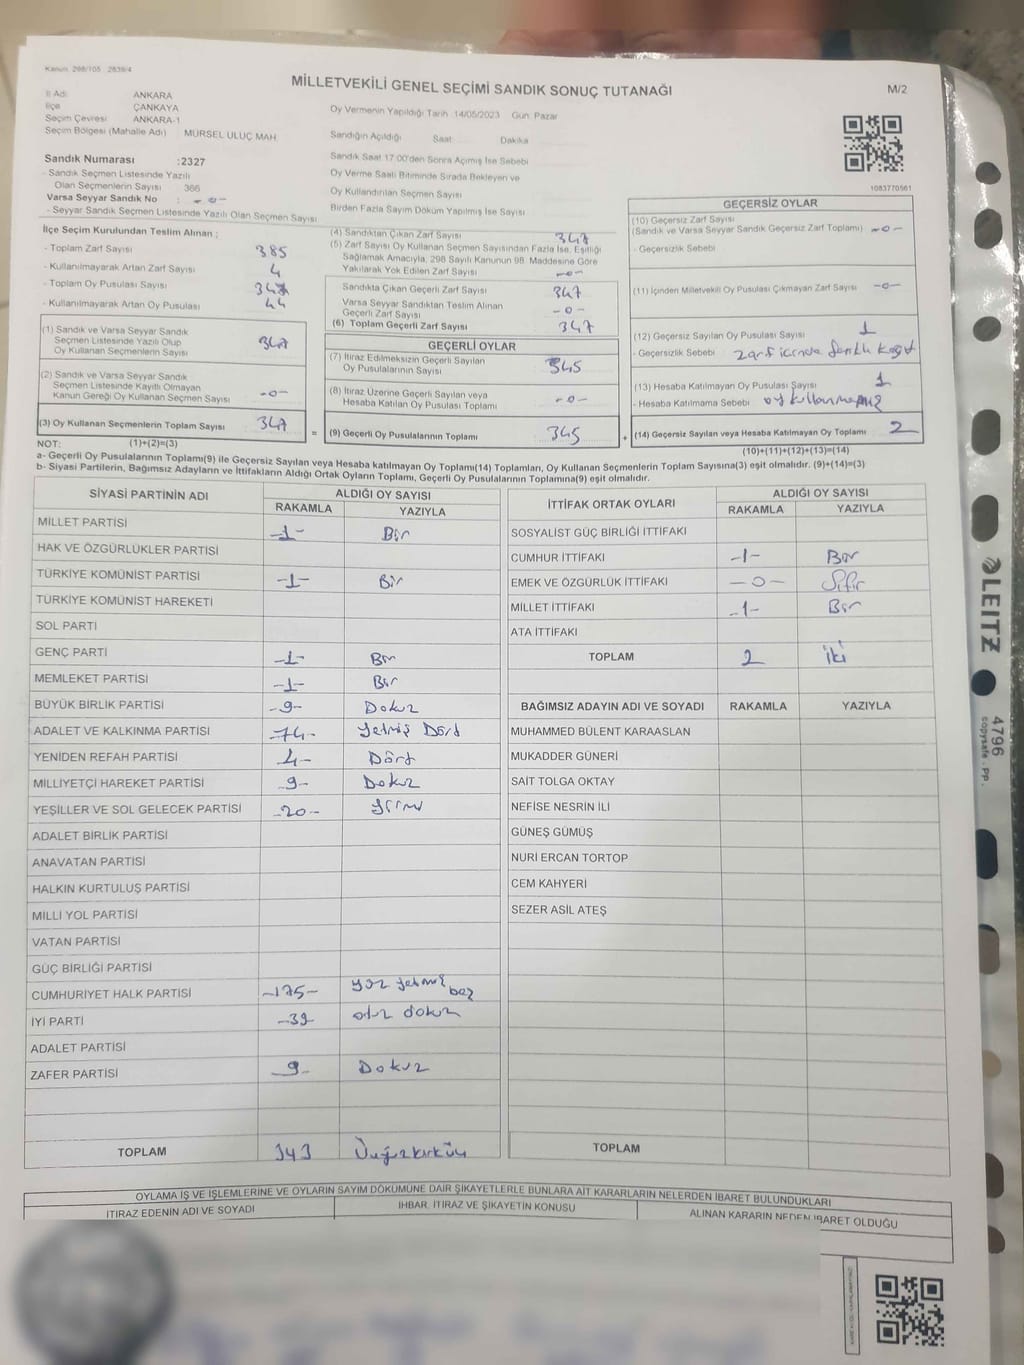 Kanun: 298/105 2839/4
MİLLETVEKİLİ GENEL SEÇİMİ SANDIK SONUÇ TUTANAĞI
M/2
İl Adı ANKARA
İlçe ÇANKAYA
Seçim Çevresi ANKARA-1
Seçim Bölgesi (Mahalle Adı) MÜRSEL ULUÇ MAH.
Oy Vermenin Yapıldığı Tarih 14/05/2023 Gün: Pazar
Sandığın Açıldığı Saat: Dakika
Sandık Saat 17:00'den Sonra Açılmış İse Sebebi
Oy Verme Saati Bitiminde Sırada Bekleyen ve
Oy Kullandırılan Seçmen Sayısı
Birden Fazla Sayım Döküm Yapılmış İse Sayısı
1083770561
Sandık Numarası :2327
- Sandık Seçmen Listesinde Yazılı
Olan Seçmenlerin Sayısı 366
Varsa Seyyar Sandık No : -o-
- Seyyar Sandık Seçmen Listesinde Yazılı Olan Seçmen Sayısı
İlçe Seçim Kurulundan Teslim Alınan ;
- Toplam Zarf Sayısı 385
- Kullanılmayarak Artan Zarf Sayısı 4
- Toplam Oy Pusulası Sayısı 347
- Kullanılmayarak Artan Oy Pusulası 44
(1) Sandık ve Varsa Seyyar Sandık
Seçmen Listesinde Yazılı Olup
Oy Kullanan Seçmenlerin Sayısı 347
(2) Sandık ve Varsa Seyyar Sandık
Seçmen Listesinde Kayıtlı Olmayan
Kanun Gereği Oy Kullanan Seçmen Sayısı -o-
(3) Oy Kullanan Seçmenlerin Toplam Sayısı 347
(1)+(2)=(3)
(4) Sandıktan Çıkan Zarf Sayısı 347
(5) Zarf Sayısı Oy Kullanan Seçmen Sayısından Fazla İse, Eşitliği
Sağlamak Amacıyla, 298 Sayılı Kanunun 98. Maddesine Göre
Yakılarak Yok Edilen Zarf Sayısı -o-
Sandıkta Çıkan Geçerli Zarf Sayısı 347
Varsa Seyyar Sandıktan Teslim Alınan
Geçerli Zarf Sayısı -o-
(6) Toplam Geçerli Zarf Sayısı 347
GEÇERLİ OYLAR
(7) İtiraz Edilmeksizin Geçerli Sayılan
Oy Pusulalarının Sayısı 345
(8) İtiraz Üzerine Geçerli Sayılan veya
Hesaba Katılan Oy Pusulası Toplamı -o-
= (9) Geçerli Oy Pusulalarının Toplamı 345
GEÇERSİZ OYLAR
(10) Geçersiz Zarf Sayısı
(Sandık ve Varsa Seyyar Sandık Geçersiz Zarf Toplamı) -o-
- Geçersizlik Sebebi
(11) İçinden Milletvekili Oy Pusulası Çıkmayan Zarf Sayısı -o-
(12) Geçersiz Sayılan Oy Pusulası Sayısı 1
- Geçersizlik Sebebi zarf içinde farklı kağıt
(13) Hesaba Katılmayan Oy Pusulası Sayısı 1
- Hesaba Katılmama Sebebi oy kullanmamış
+ (14) Geçersiz Sayılan veya Hesaba Katılmayan Oy Toplamı 2
(10)+(11)+(12)+(13)=(14)
NOT:
a- Geçerli Oy Pusulalarının Toplamı(9) ile Geçersiz Sayılan veya Hesaba katılmayan Oy Toplamı(14) Toplamları, Oy Kullanan Seçmenlerin Toplam Sayısına(3) eşit olmalıdır. (9)+(14)=(3)
b- Siyasi Partilerin, Bağımsız Adayların ve İttifakların Aldığı Ortak Oyların Toplamı, Geçerli Oy Pusulalarının Toplamına(9) eşit olmalıdır.
SİYASİ PARTİNİN ADI ALDIĞI OY SAYISI
RAKAMLA YAZIYLA
MİLLET PARTİSİ -1- Bir
HAK VE ÖZGÜRLÜKLER PARTİSİ
TÜRKİYE KOMÜNİST PARTİSİ -1- Bir
TÜRKİYE KOMÜNİST HAREKETİ
SOL PARTİ
GENÇ PARTİ -1- Bir
MEMLEKET PARTİSİ -1- Bir
BÜYÜK BİRLİK PARTİSİ -9- Dokuz
ADALET VE KALKINMA PARTİSİ -74- Yetmiş Dört
YENİDEN REFAH PARTİSİ 4- Dört
MİLLİYETÇİ HAREKET PARTİSİ -9- Dokuz
YEŞİLLER VE SOL GELECEK PARTİSİ -20- Yirmi
ADALET BİRLİK PARTİSİ
ANAVATAN PARTİSİ
HALKIN KURTULUŞ PARTİSİ
MİLLİ YOL PARTİSİ
VATAN PARTİSİ
GÜÇ BİRLİĞİ PARTİSİ
CUMHURİYET HALK PARTİSİ -175- Yüz yetmiş beş
İYİ PARTİ -39- otuz dokuz
ADALET PARTİSİ
ZAFER PARTİSİ -9- Dokuz
TOPLAM 343 Üçyüzkırküç
İTTİFAK ORTAK OYLARI ALDIĞI OY SAYISI
RAKAMLA YAZIYLA
SOSYALİST GÜÇ BİRLİĞİ İTTİFAKI
CUMHUR İTTİFAKI -1- Bir
EMEK VE ÖZGÜRLÜK İTTİFAKI -o- Sıfır
MİLLET İTTİFAKI -1- Bir
ATA İTTİFAKI
TOPLAM 2 iki
BAĞIMSIZ ADAYIN ADI VE SOYADI RAKAMLA YAZIYLA
MUHAMMED BÜLENT KARAASLAN
MUKADDER GÜNERİ
SAİT TOLGA OKTAY
NEFİSE NESRİN İLİ
GÜNEŞ GÜMÜŞ
NURİ ERCAN TORTOP
CEM KAHYERİ
SEZER ASİL ATEŞ
TOPLAM
OYLAMA İŞ VE İŞLEMLERİNE VE OYLARIN SAYIM DÖKÜMÜNE DAİR ŞİKAYETLERLE BUNLARA AİT KARARLARIN NELERDEN İBARET BULUNDUKLARI
İTİRAZ EDENİN ADI VE SOYADI İHBAR, İTİRAZ VE ŞİKAYETİN KONUSU ALINAN KARARIN NEDEN İBARET OLDUĞU
LEITZ
4796
copysafe - PP.